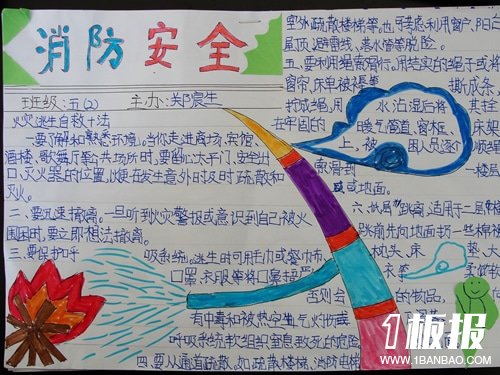 消防安全
班级:五(2) 主办:郑宸生
火灾逃生自救十法
一要了解和熟悉环境。当你走进商场、宾馆、
酒楼、歌舞厅等公共场所时,要留心太平门、安全出
口、灭火器的位置,以便在发生意外时及时疏散和
灭火。
二、要迅速撤离。一旦听到火灾警报或意识到自己被火
围困时,要立即想法撤离。
三、要保护呼吸系统。逃生时可用毛巾或餐巾布、
口罩、衣服等将口鼻捂严
否则会
有中毒和被热空气灼伤
呼吸系统软组织窒息致死的危险
四、要从通道疏散。如疏散楼梯、消防电梯
室外疏散楼梯等。也可考虑利用窗户、阳台
屋顶、避雷线、落水管等脱险。
五、要利用绳索滑行。用结实的绳子或将
窗帘、床单被褥等撕成条,
拧成绳,用水沾湿后将
在牢固的暖气管道、窗框、床
上,被困人员逐个顺绳
索滑到一楼层
或地面。
跳离,适用于二层楼
跳前先向地面扔一些棉被
枕头、床垫、大
衣等柔软
的物品,
1板报
WWW.1BANBAO.COM